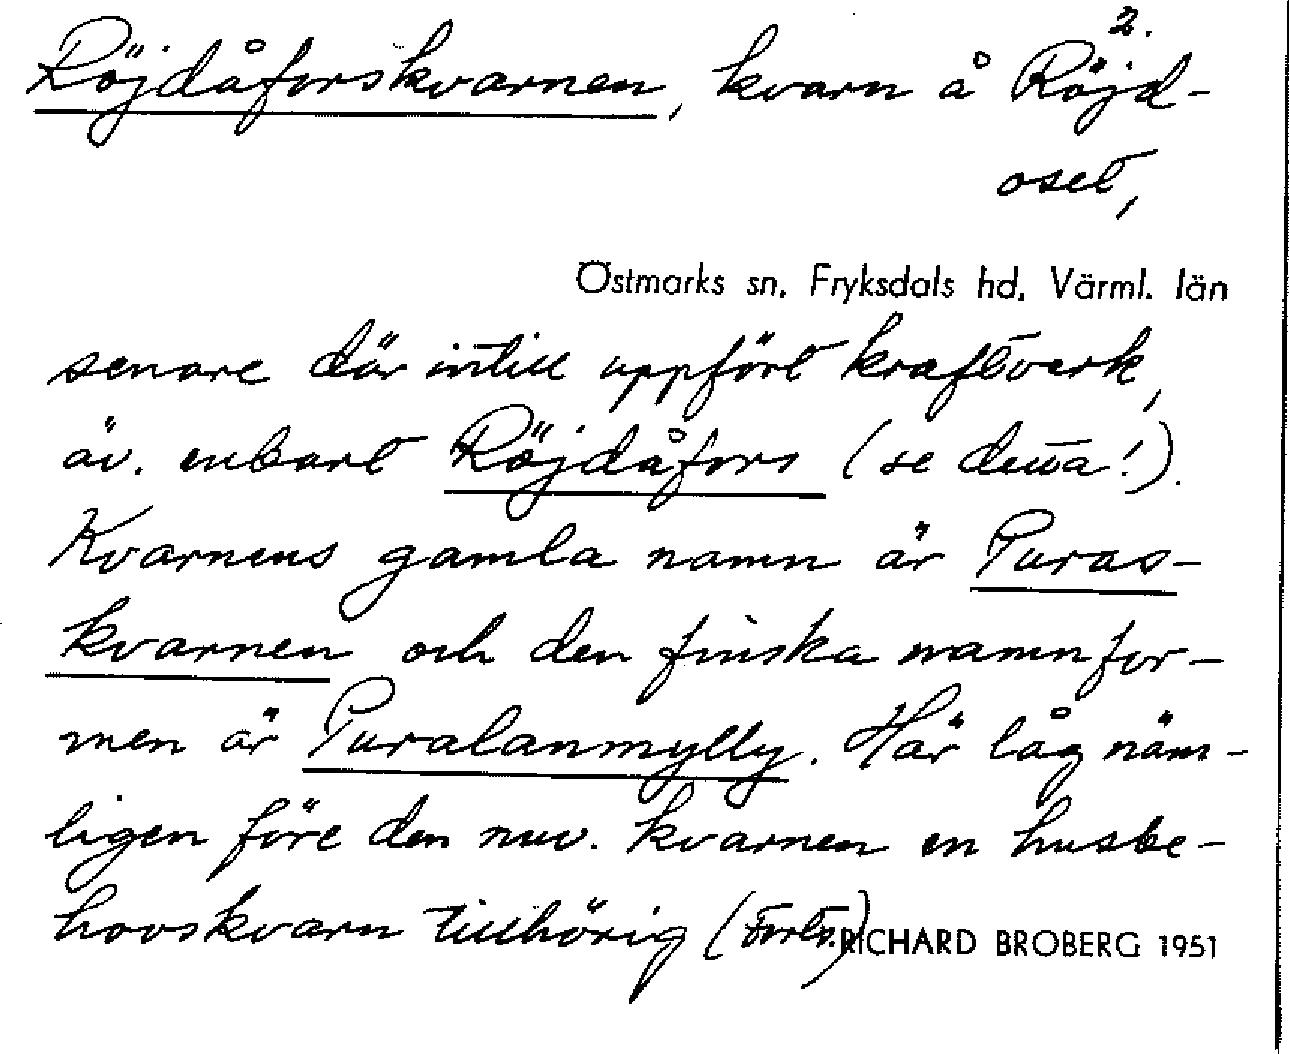 2.
Röjdåforskvarnen, kvarn å Röjd-
oset,
Östmarks sn, Fryksdals hd, Värml. län
senare där intill uppfört kraftverk,
äv. enbart Röjdåfors (se detta!).
Kvarnens gamla namn är Puras-
kvarnen och den finska namnfor-
men är Puralanmylly. Här låg näm-
ligen före den nuv. kvarnen en husbe-
hovskvarn tillhörig (Forts.)
RICHARD BROBERG 1951